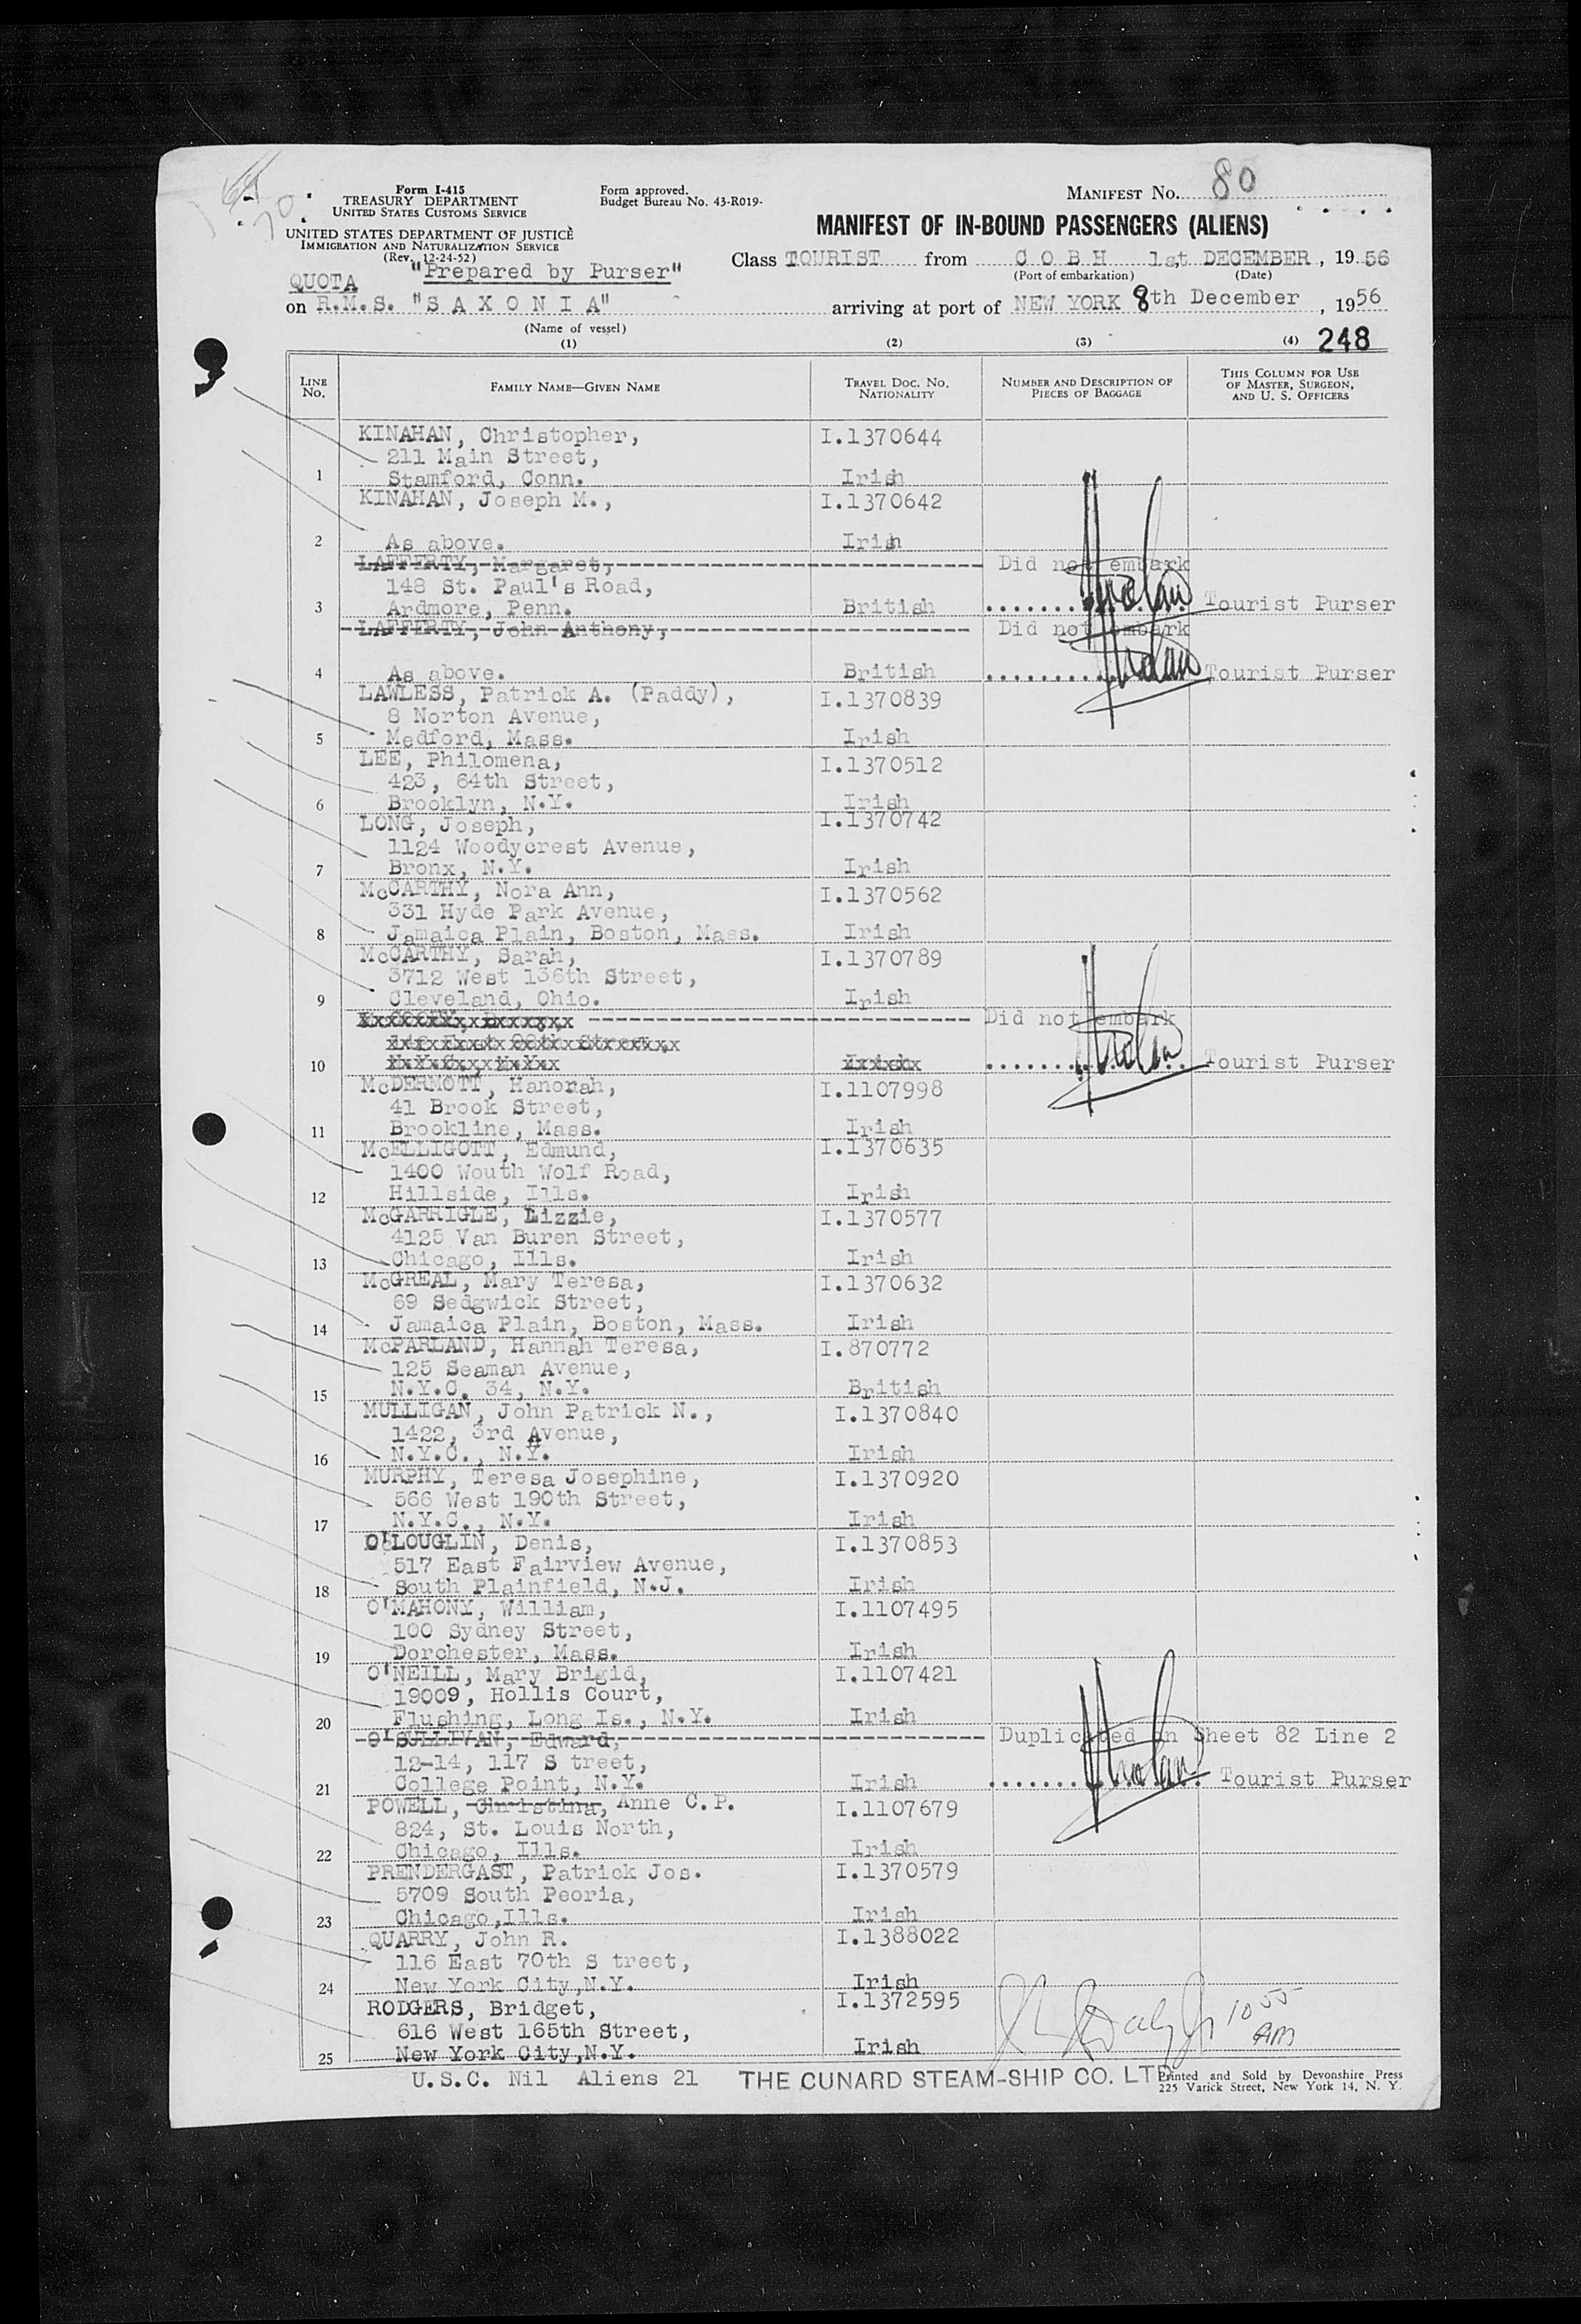 Form I-415
TREASURY DEPARTMENT
UNITED STATES CUSTOMS SERVICE
UNITED STATES DEPARTMENT OF JUSTICE
IMMIGRATION AND NATURALIZATION SERVICE
(Rev. 12-24-52)
Form approved.
Budget Bureau No. 43-R019-
MANIFEST No. 80
MANIFEST OF IN-BOUND PASSENGERS (ALIENS)
"Prepared by Purser"
QUOTA
Class TOURIST from C O B H 1st DECEMBER, 1956
(Port of embarkation) (Date)
on R.M.S. "S A X O N I A" arriving at port of NEW YORK 8th December, 1956
(Name of vessel)
(1) (2) (3) (4) 248
LINE No. FAMILY NAME—GIVEN NAME TRAVEL DOC. NO. NATIONALITY NUMBER AND DESCRIPTION OF PIECES OF BAGGAGE THIS COLUMN FOR USE OF MASTER, SURGEON, AND U. S. OFFICERS
KINAHAN, Christopher, I.1370644
211 Main Street,
1 Stamford, Conn. Irish
KINAHAN, Joseph M., I.1370642
2 As above. Irish
LAFFERTY, Margaret, Did not embark
148 St. Paul's Road,
3 Ardmore, Penn. British Tourist Purser
LAFFERTY, John Anthony, Did not embark
4 As above. British Tourist Purser
LAWLESS, Patrick A. (Paddy), I.1370839
8 Norton Avenue,
5 Medford, Mass. Irish
LEE, Philomena, I.1370512
423, 64th Street,
6 Brooklyn, N.Y. Irish
LONG, Joseph, I.1370742
1124 Woodycrest Avenue,
7 Bronx, N.Y. Irish
McCARTHY, Nora Ann, I.1370562
331 Hyde Park Avenue,
8 Jamaica Plain, Boston, Mass. Irish
McCARTHY, Sarah, I.1370789
3712 West 136th Street,
9 Cleveland, Ohio. Irish
Did not embark
10 Tourist Purser
McDERMOTT, Hanorah, I.1107998
41 Brook Street,
11 Brookline, Mass. Irish
McELLIGOTT, Edmund, I.1370635
1400 Wouth Wolf Road,
12 Hillside, Ills. Irish
McGARRIGLE, Lizzie, I.1370577
4125 Van Buren Street,
13 Chicago, Ills. Irish
McGREAL, Mary Teresa, I.1370632
69 Sedgwick Street,
14 Jamaica Plain, Boston, Mass. Irish
McPARLAND, Hannah Teresa, I.870772
125 Seaman Avenue,
15 N.Y.C. 34, N.Y. British
MULLIGAN, John Patrick N., I.1370840
1422, 3rd Avenue,
16 N.Y.C., N.Y. Irish
MURPHY, Teresa Josephine, I.1370920
566 West 190th Street,
17 N.Y.C., N.Y. Irish
O'LOUGLIN, Denis, I.1370853
517 East Fairview Avenue,
18 South Plainfield, N.J. Irish
O'MAHONY, William, I.1107495
100 Sydney Street,
19 Dorchester, Mass. Irish
O'NEILL, Mary Brigid, I.1107421
19009, Hollis Court,
20 Flushing, Long Is., N.Y. Irish
O'SULLIVAN, Edward, Duplicated on Sheet 82 Line 2
12-14, 117 S treet,
21 College Point, N.Y. Irish Tourist Purser
POWELL, Christina, Anne C.P. I.1107679
824, St. Louis North,
22 Chicago, Ills. Irish
PRENDERGAST, Patrick Jos. I.1370579
5709 South Peoria,
23 Chicago,Ills. Irish
QUARRY, John R. I.1388022
116 East 70th S treet,
24 New York City,N.Y. Irish
RODGERS, Bridget, I.1372595
616 West 165th Street, 10 55 AM
25 New York City,N.Y. Irish
U.S.C. Nil Aliens 21 THE CUNARD STEAM-SHIP CO. LTD
Printed and Sold by Devonshire Press
225 Varick Street, New York 14, N. Y.